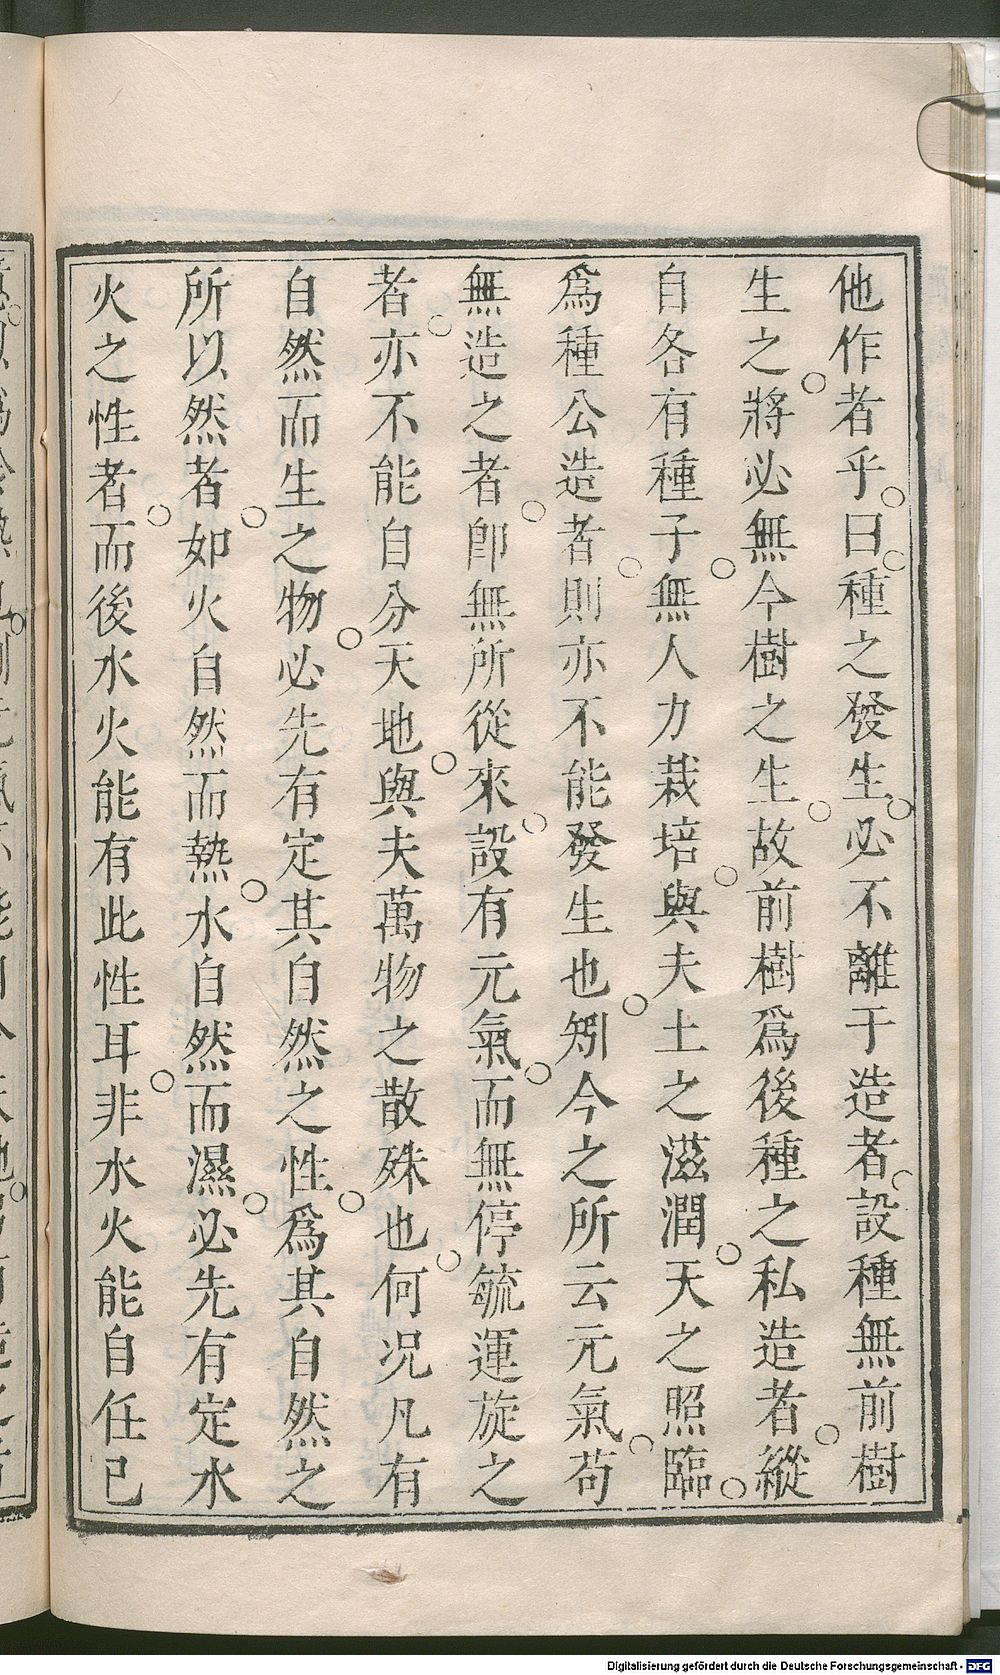 他作者乎○曰○種之發生○必不離于造者○設種無前樹
生之○將必無今樹之生○故前樹爲後種之私造者○縱
自各有種子○無人力栽培○與夫土之滋潤○天之照臨○
爲種公造者○則亦不能發生也○矧今之所云元氣○苟
無造之者○卽無所從來○設有元氣○而無停毓運旋之
者○亦不能自分天地○與夫萬物之散殊也○何况凡有
自然而生之物○必先有定其自然之性○爲其自然之
所以然者○如火自然而熱○水自然而濕○必先有定水
火之性者○而後水火能有此性耳○非水火能自任已
Digitalisierung gefördert durch die Deutsche Forschungsgemeinschaft - DFG